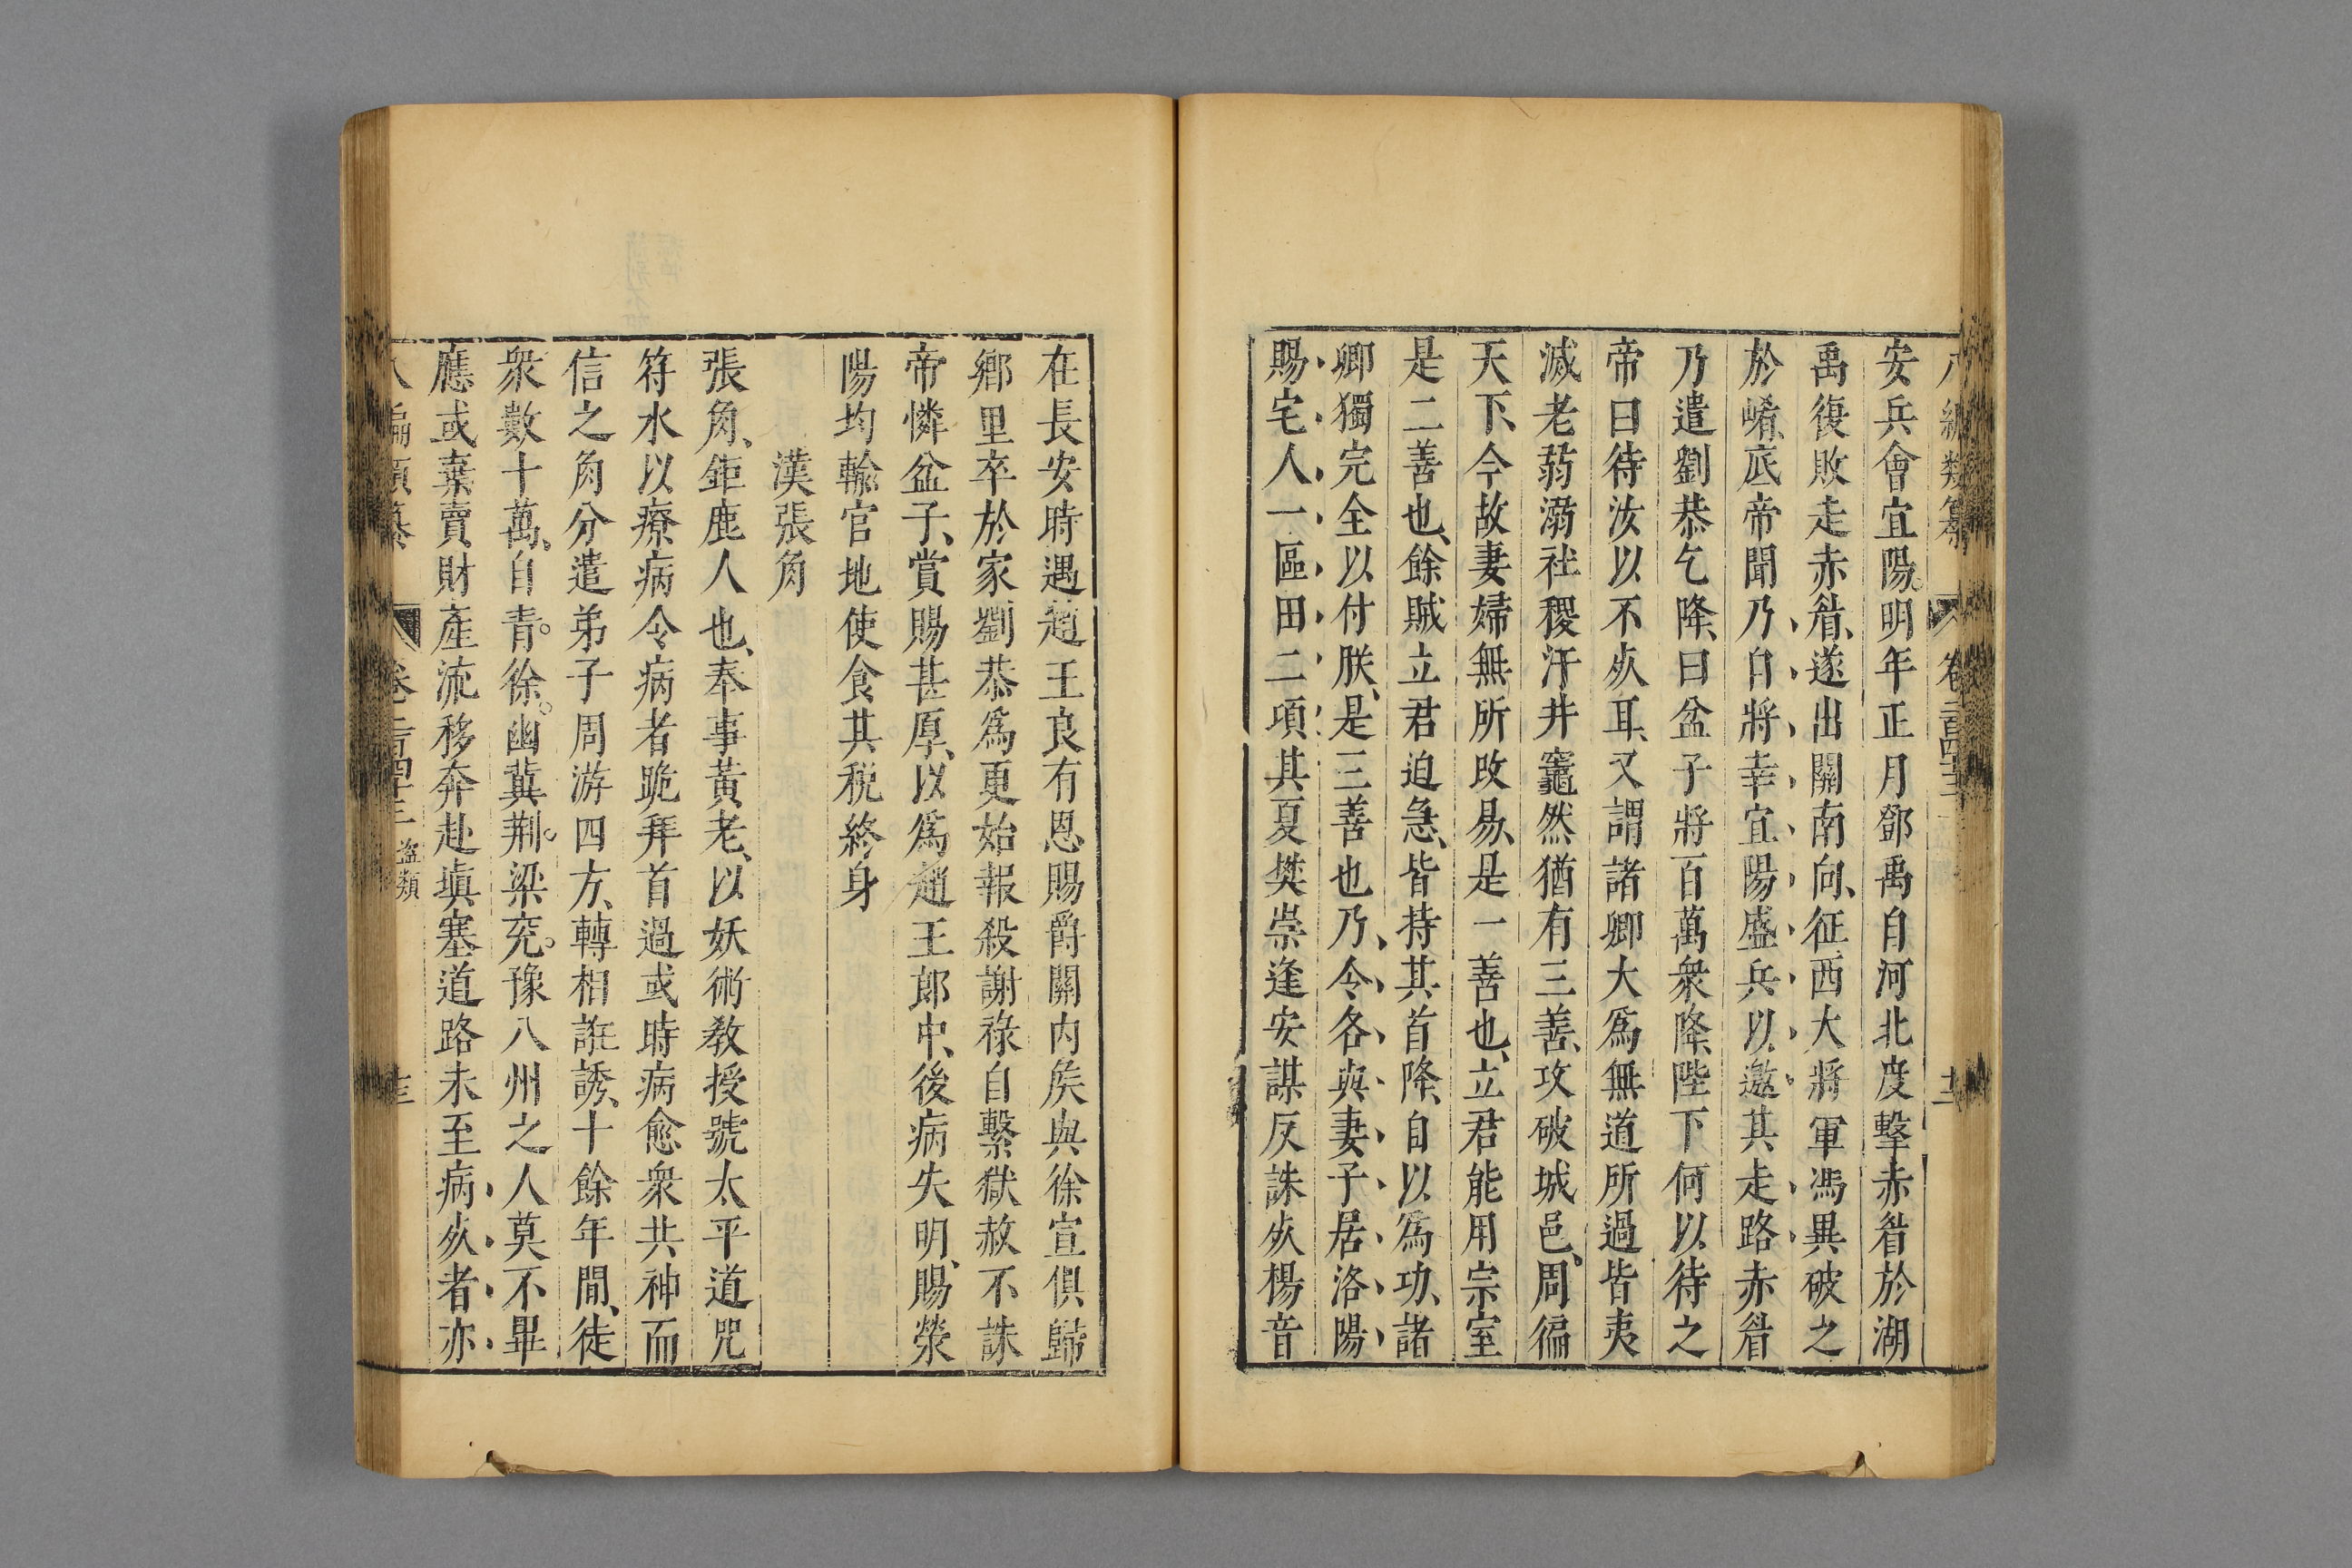 八編類纂 卷二百四十三 十二
安兵會宜陽。明年正月鄧禹自河北度擊赤眉於湖
禹復敗走赤眉、遂出關南向、征西大將軍馮異破之
於崤底帝聞乃自將幸宜陽盛兵以邀其走路赤眉
乃遣劉恭乞降、曰盆子將百萬衆降、陛下何以待之
帝曰待汝以不𣦸耳、又謂諸卿大爲無道所過皆夷
滅老弱溺社稷汙井竈然猶有三善、攻破城邑、周徧
天下、今故妻婦無所改易、是一善也、立君能用宗室
是二善也、餘賊立君迫急、皆持其首降、自以爲功、諸
卿獨完全以付朕、是三善也乃令各與妻子居洛陽
賜宅人一區田二項其夏樊崇逢安謀反誅𣦸楊音
在長安時遇趙王良有恩賜爵關内矦與徐宣俱歸
鄉里卒於家劉恭爲更始報殺謝祿自繫獄赦不誅
帝憐盆子、賞賜甚厚、以爲趙王郎中、後病失明、賜滎
陽均輸官地使食其稅終身
漢張角
張角、鉅鹿人也、奉事黃老、以妖術教授號太平道咒
符水以療病令病者跪拜首過或時病愈衆共神而
信之角分遣弟子周游四方、轉相誑誘、十餘年間、徒
衆數十萬、自青。徐。幽冀。荆。梁兖。豫八州之人莫不畢
應或棄賣財產流移奔赴塡塞道路未至病𣦸者亦
八編類纂 卷二百四十三 盜類 十三